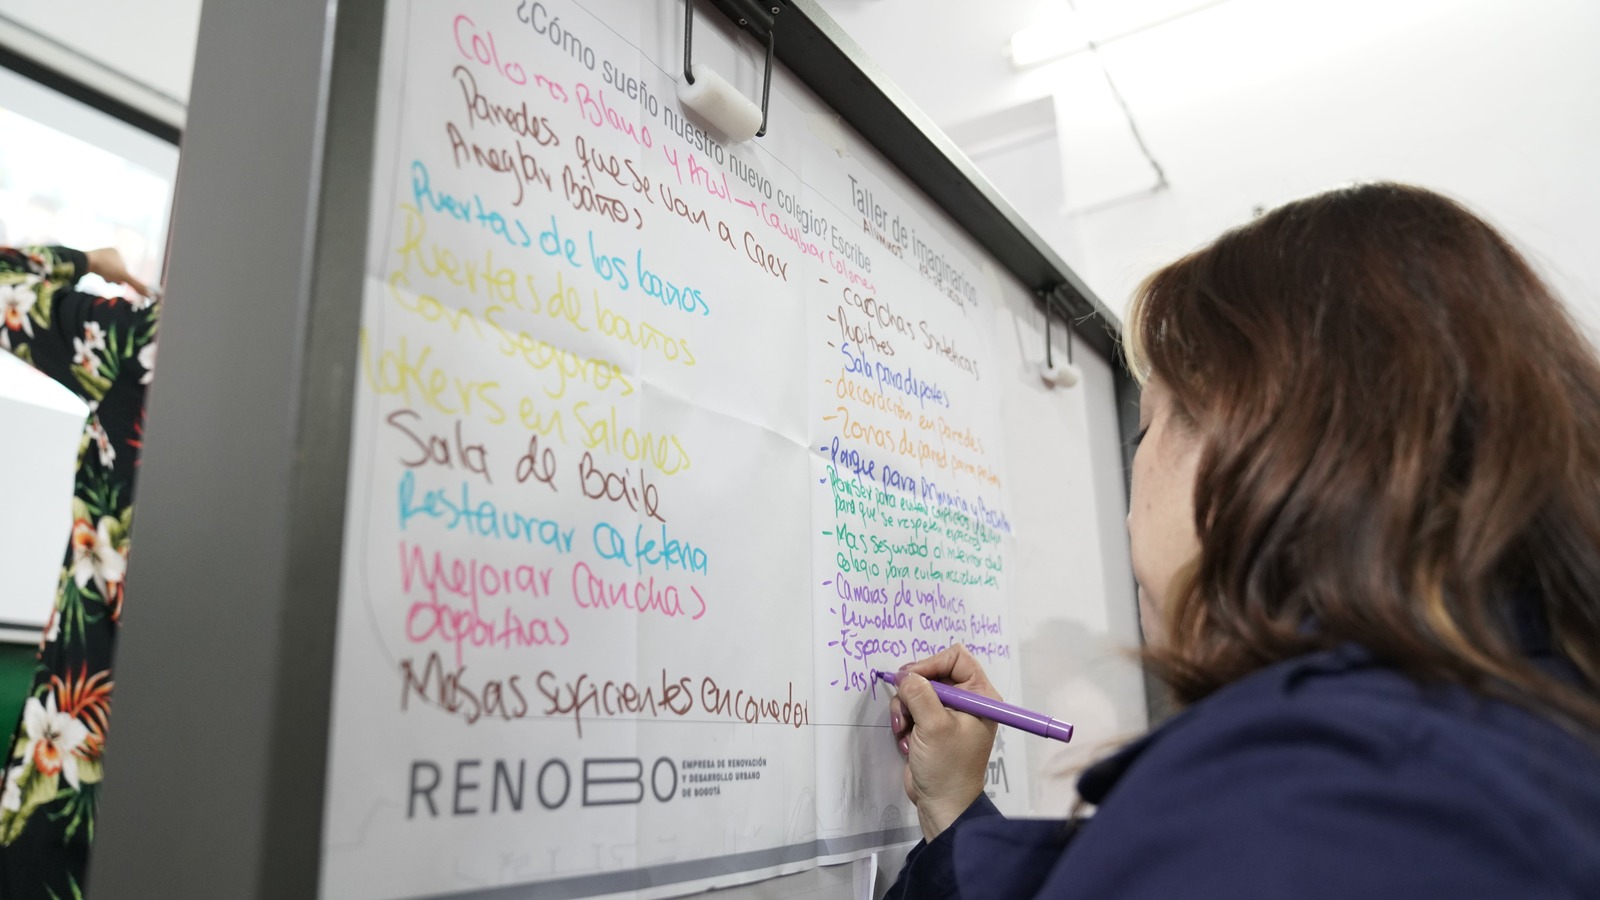 ¿Cómo sueño nuestro nuevo colegio? Escribe
Colores Blanco y Azul → Cambiar Colores
Paredes que se van a Caer
Arreglar Baños
Puertas de los baños
Puertas de baños
con seguros
Lokers en Salones
Sala de Baile
Restaurar Cafeteria
Mejorar Canchas
deportivas
Mesas suficientes en comedor
RENOBO
EMPRESA DE RENOVACIÓN
Y DESARROLLO URBANO
DE BOGOTÁ
Taller de imaginarios
Alumnos
- Canchas Sinteticas
- Pupitres
- Sala para deportes
- decoración en paredes
- Zonas de pared para
- Parque para primaria y
para evitar conflictos y
para que se respeten espacios
- Mas seguridad al interior del
colegio para evitar accidentes
- Camaras de vigilancia
- Remodelar canchas futbol
- Espacos para
- las p